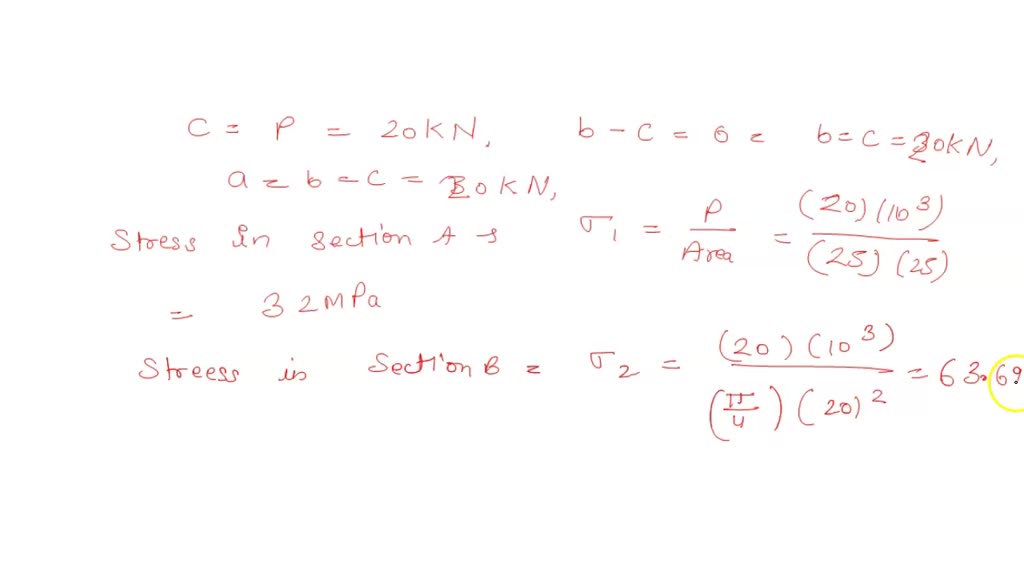 C = P = 20KN, b - C = 0 = b = C = 20KN,
a = b = C = 20KN,
Stress in section A is σ1 = P / Area = (20) (10^3) / (25) (25)
= 32MPa
Streess in Section B = σ2 = (20) (10^3) / (π/4) (20)^2 = 63.69